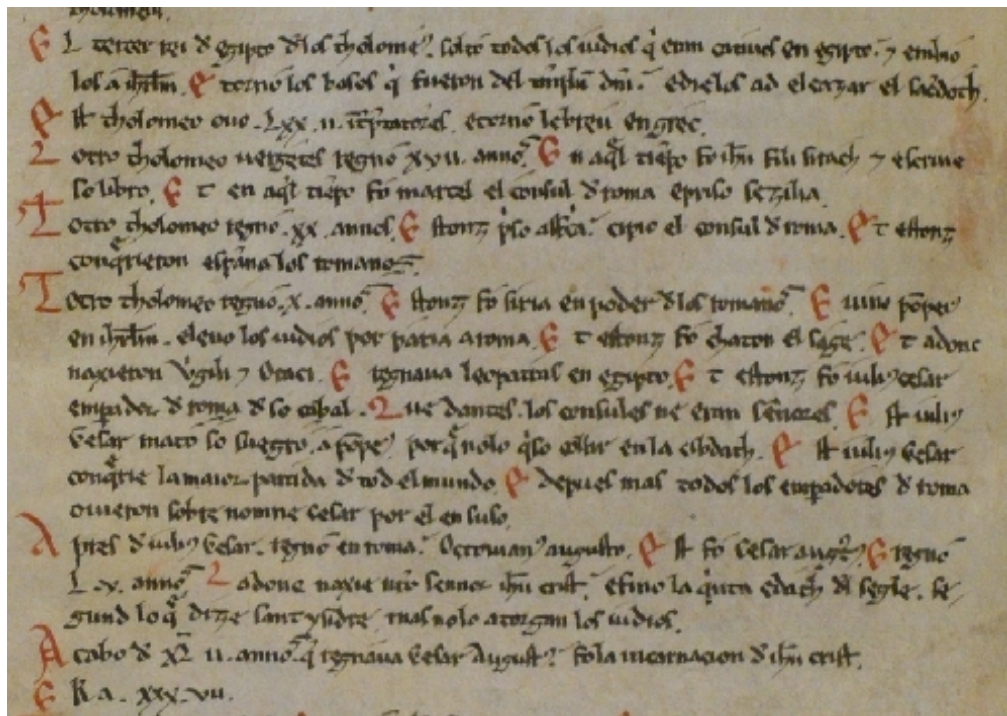 tholomeu
E L tercer rei d egipto dlos tholome⁹. soltó todos los iudios q̃ eran catiuos en egipto. ⁊ embió
los a ihrlm. E tornó los basos q̃ fueron del templũ dni. edielos ad eleazar el sacdoch.
E st tholomeo ouo .Lxx. ii. itp̃tatores. etornó lebreu en grec.
L otro tholomeo uergetes regnó xxvii. annõ. E n aq̃l tiẽpo fo ihu fili sirach ⁊ escriue
so libro. E t en aq̃l tiẽpo fo marcel el consul d roma epriso Sezilia.
L otro tholomeo regnó .xx. annos. E stonz p̃so affrica. cipio el consul d roma. E t estonz
conq̃rieron espãna los romanos.
L otro tholomeo regnó .x. annõ. E stonz fo siria en poder dlos romanõ. E uino põpe⁹
en ihrlm. eleuo los iudios por paria a roma. E t estonz fo chaton el sage. E t adonc
naxieron V̓gili ⁊ Oraci. E regnaua leopatras en egipto. E t estonz fo iuli⁹ cesar
emp̃ador d roma d so cabal. Q ue dantes los consules ne eran sẽnores. E st iuli⁹
Cesar mató so suegro, a põpe⁹ porq̃ nolo q̃so coller en la cibdach. E st iuli⁹ Cesar
conq̃rie la maior partida d tod el mundo. E depues mas todos los emp̃adores d roma
ouieron sobre nomne cesar por el en suso.
A pres d iuli⁹ Cesar. regnó en roma. Octouian⁹ augusto. E st fo Cesar august⁹. E regnó
L. v. annõ. E adonc naxie nr̃o sennor ihu crist. efino la q̃nta edach del segle. se
gund lo q̃ dize sant ysidre, mas nolo atorgan los iudios.
A cabo d xL. ii. annõ q̃ regnaua Cesar August⁹. fo la incarnacion d ihu crist.
E R a. xxx. vii.